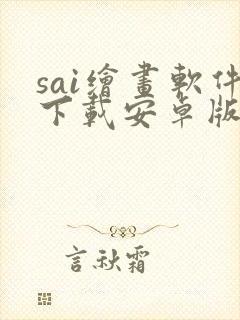 sai繪畫軟件
下載安卓版
言秋霜